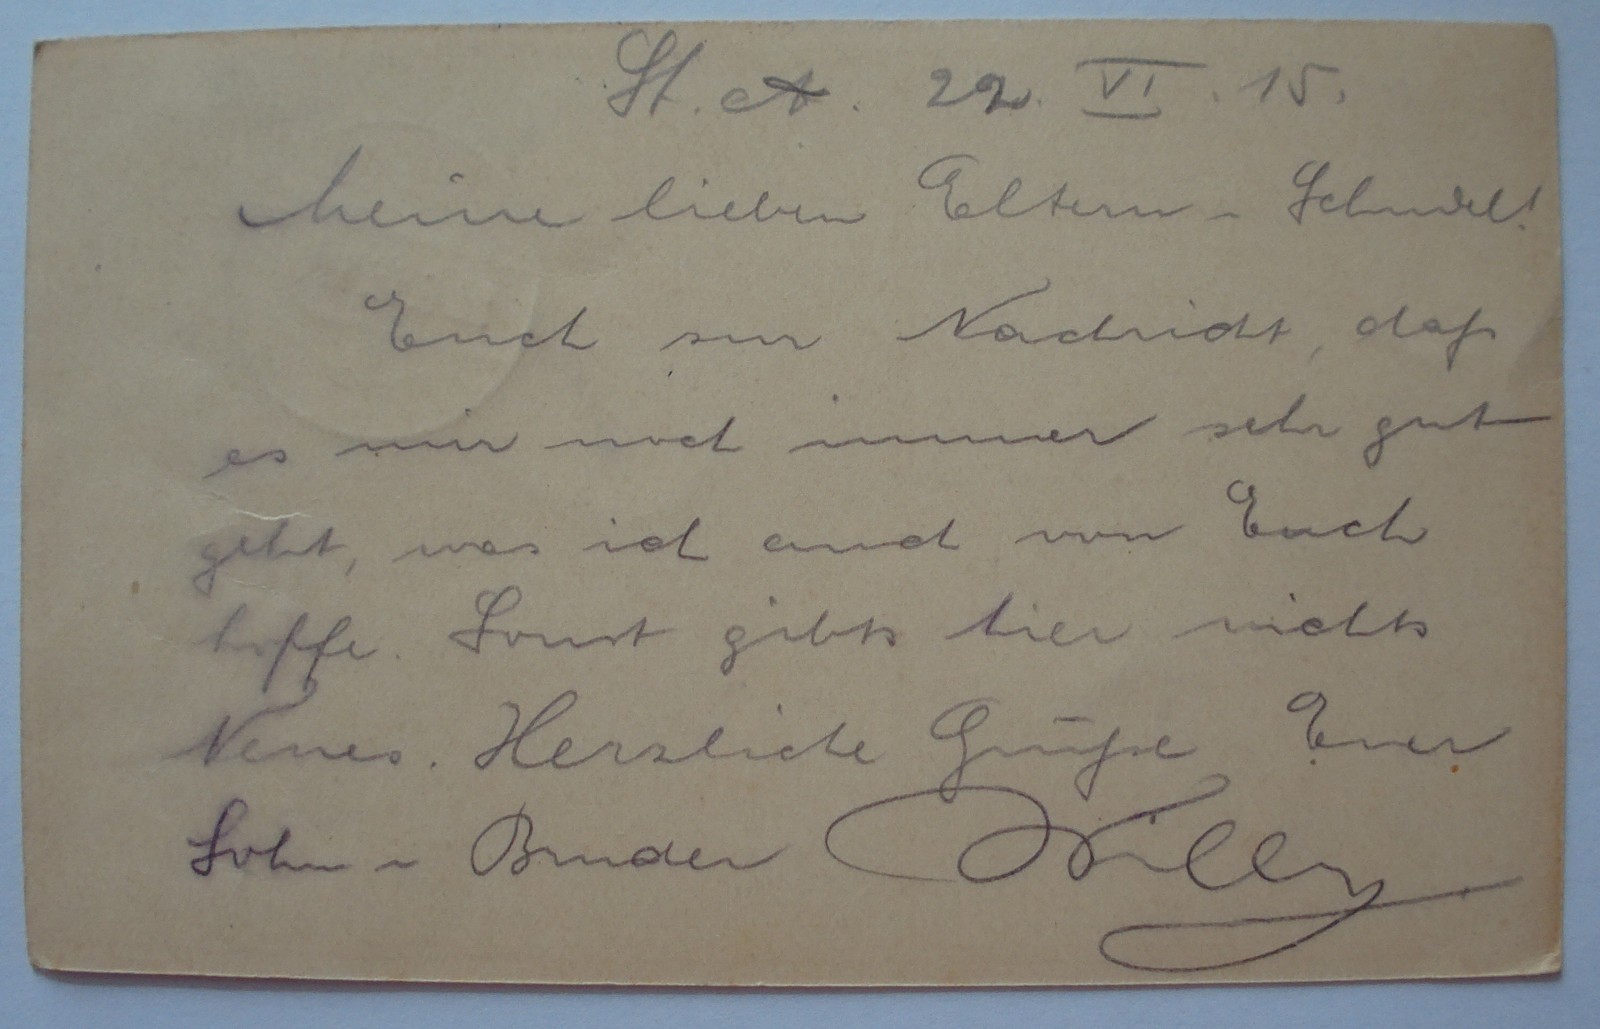 St. A. 22. VI. 15.
Meine lieben Eltern u
Euch zur Nachricht, daß
es mir noch immer sehr gut
geht, was ich auch von Euch
hoffe. Sonst gibts hier nichts
Neues. Herzliche Grüße Euer
Sohn u Bruder Willy